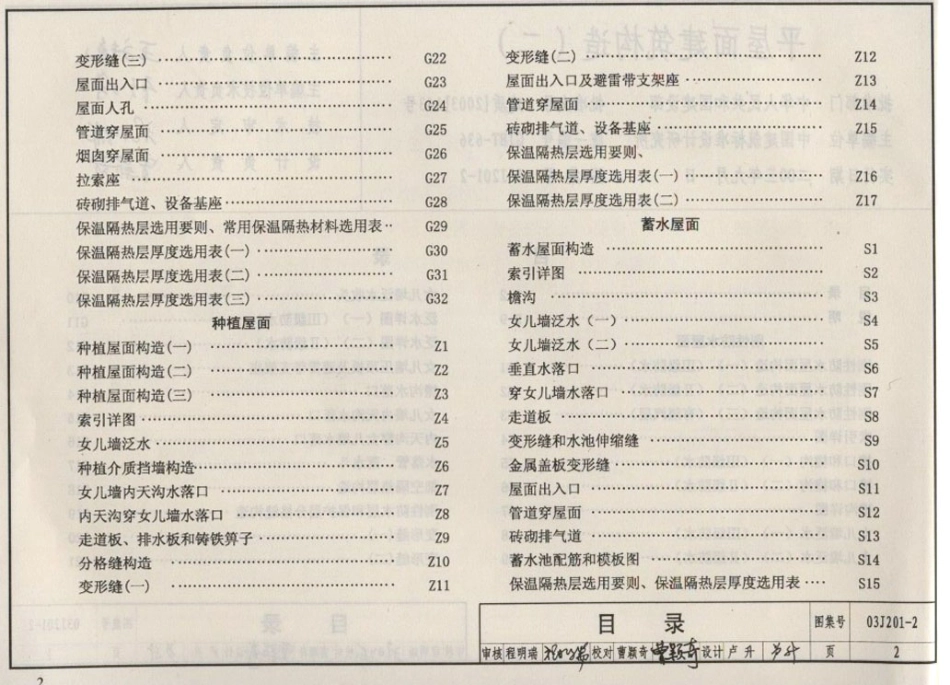 变形缝(三) G22
屋面出入口 G23
屋面人孔 G24
管道穿屋面 G25
烟囱穿屋面 G26
拉索座 G27
砖砌排气道、设备基座 G28
保温隔热层选用要则、常用保温隔热材料选用表 G29
保温隔热层厚度选用表(一) G30
保温隔热层厚度选用表(二) G31
保温隔热层厚度选用表(三) G32
种植屋面
种植屋面构造(一) Z1
种植屋面构造(二) Z2
种植屋面构造(三) Z3
索引详图 Z4
女儿墙泛水 Z5
种植介质挡墙构造 Z6
女儿墙内天沟水落口 Z7
内天沟穿女儿墙水落口 Z8
走道板、排水板和铸铁箅子 Z9
分格缝构造 Z10
变形缝(一) Z11
变形缝(二) Z12
屋面出入口及避雷带支架座 Z13
管道穿屋面 Z14
砖砌排气道、设备基座 Z15
保温隔热层选用要则、
保温隔热层厚度选用表(一) Z16
保温隔热层厚度选用表(二) Z17
蓄水屋面
蓄水屋面构造 S1
索引详图 S2
檐沟 S3
女儿墙泛水(一) S4
女儿墙泛水(二) S5
垂直水落口 S6
穿女儿墙水落口 S7
走道板 S8
变形缝和水池伸缩缝 S9
金属盖板变形缝 S10
屋面出入口 S11
管道穿屋面 S12
砖砌排气道 S13
蓄水池配筋和模板图 S14
保温隔热层选用要则、保温隔热层厚度选用表 S15
目 录 图集号 03J201-2
审核 程明瑞 校对 曹颖奇 曹颖奇 设计 卢升 页 2
2